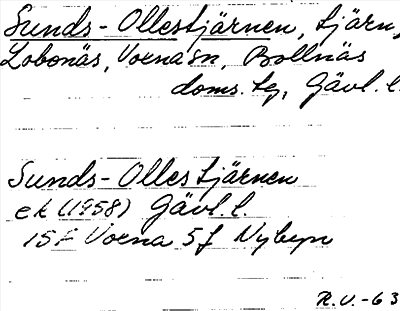 Sunds-Ollestjärnen, tjärn,
Lobonäs, Voxna sn, Bollnäs
doms. tg, Gävl. l.
Sunds-Ollestjärnen
ek (1958) Gävl. l.
15F Voxna 5f Nybyn
R.U.-63